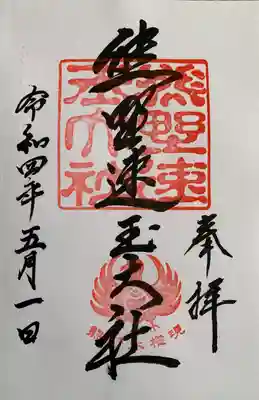 奉拝
熊野速玉大社
令和四年五月一日
熊野速玉大社